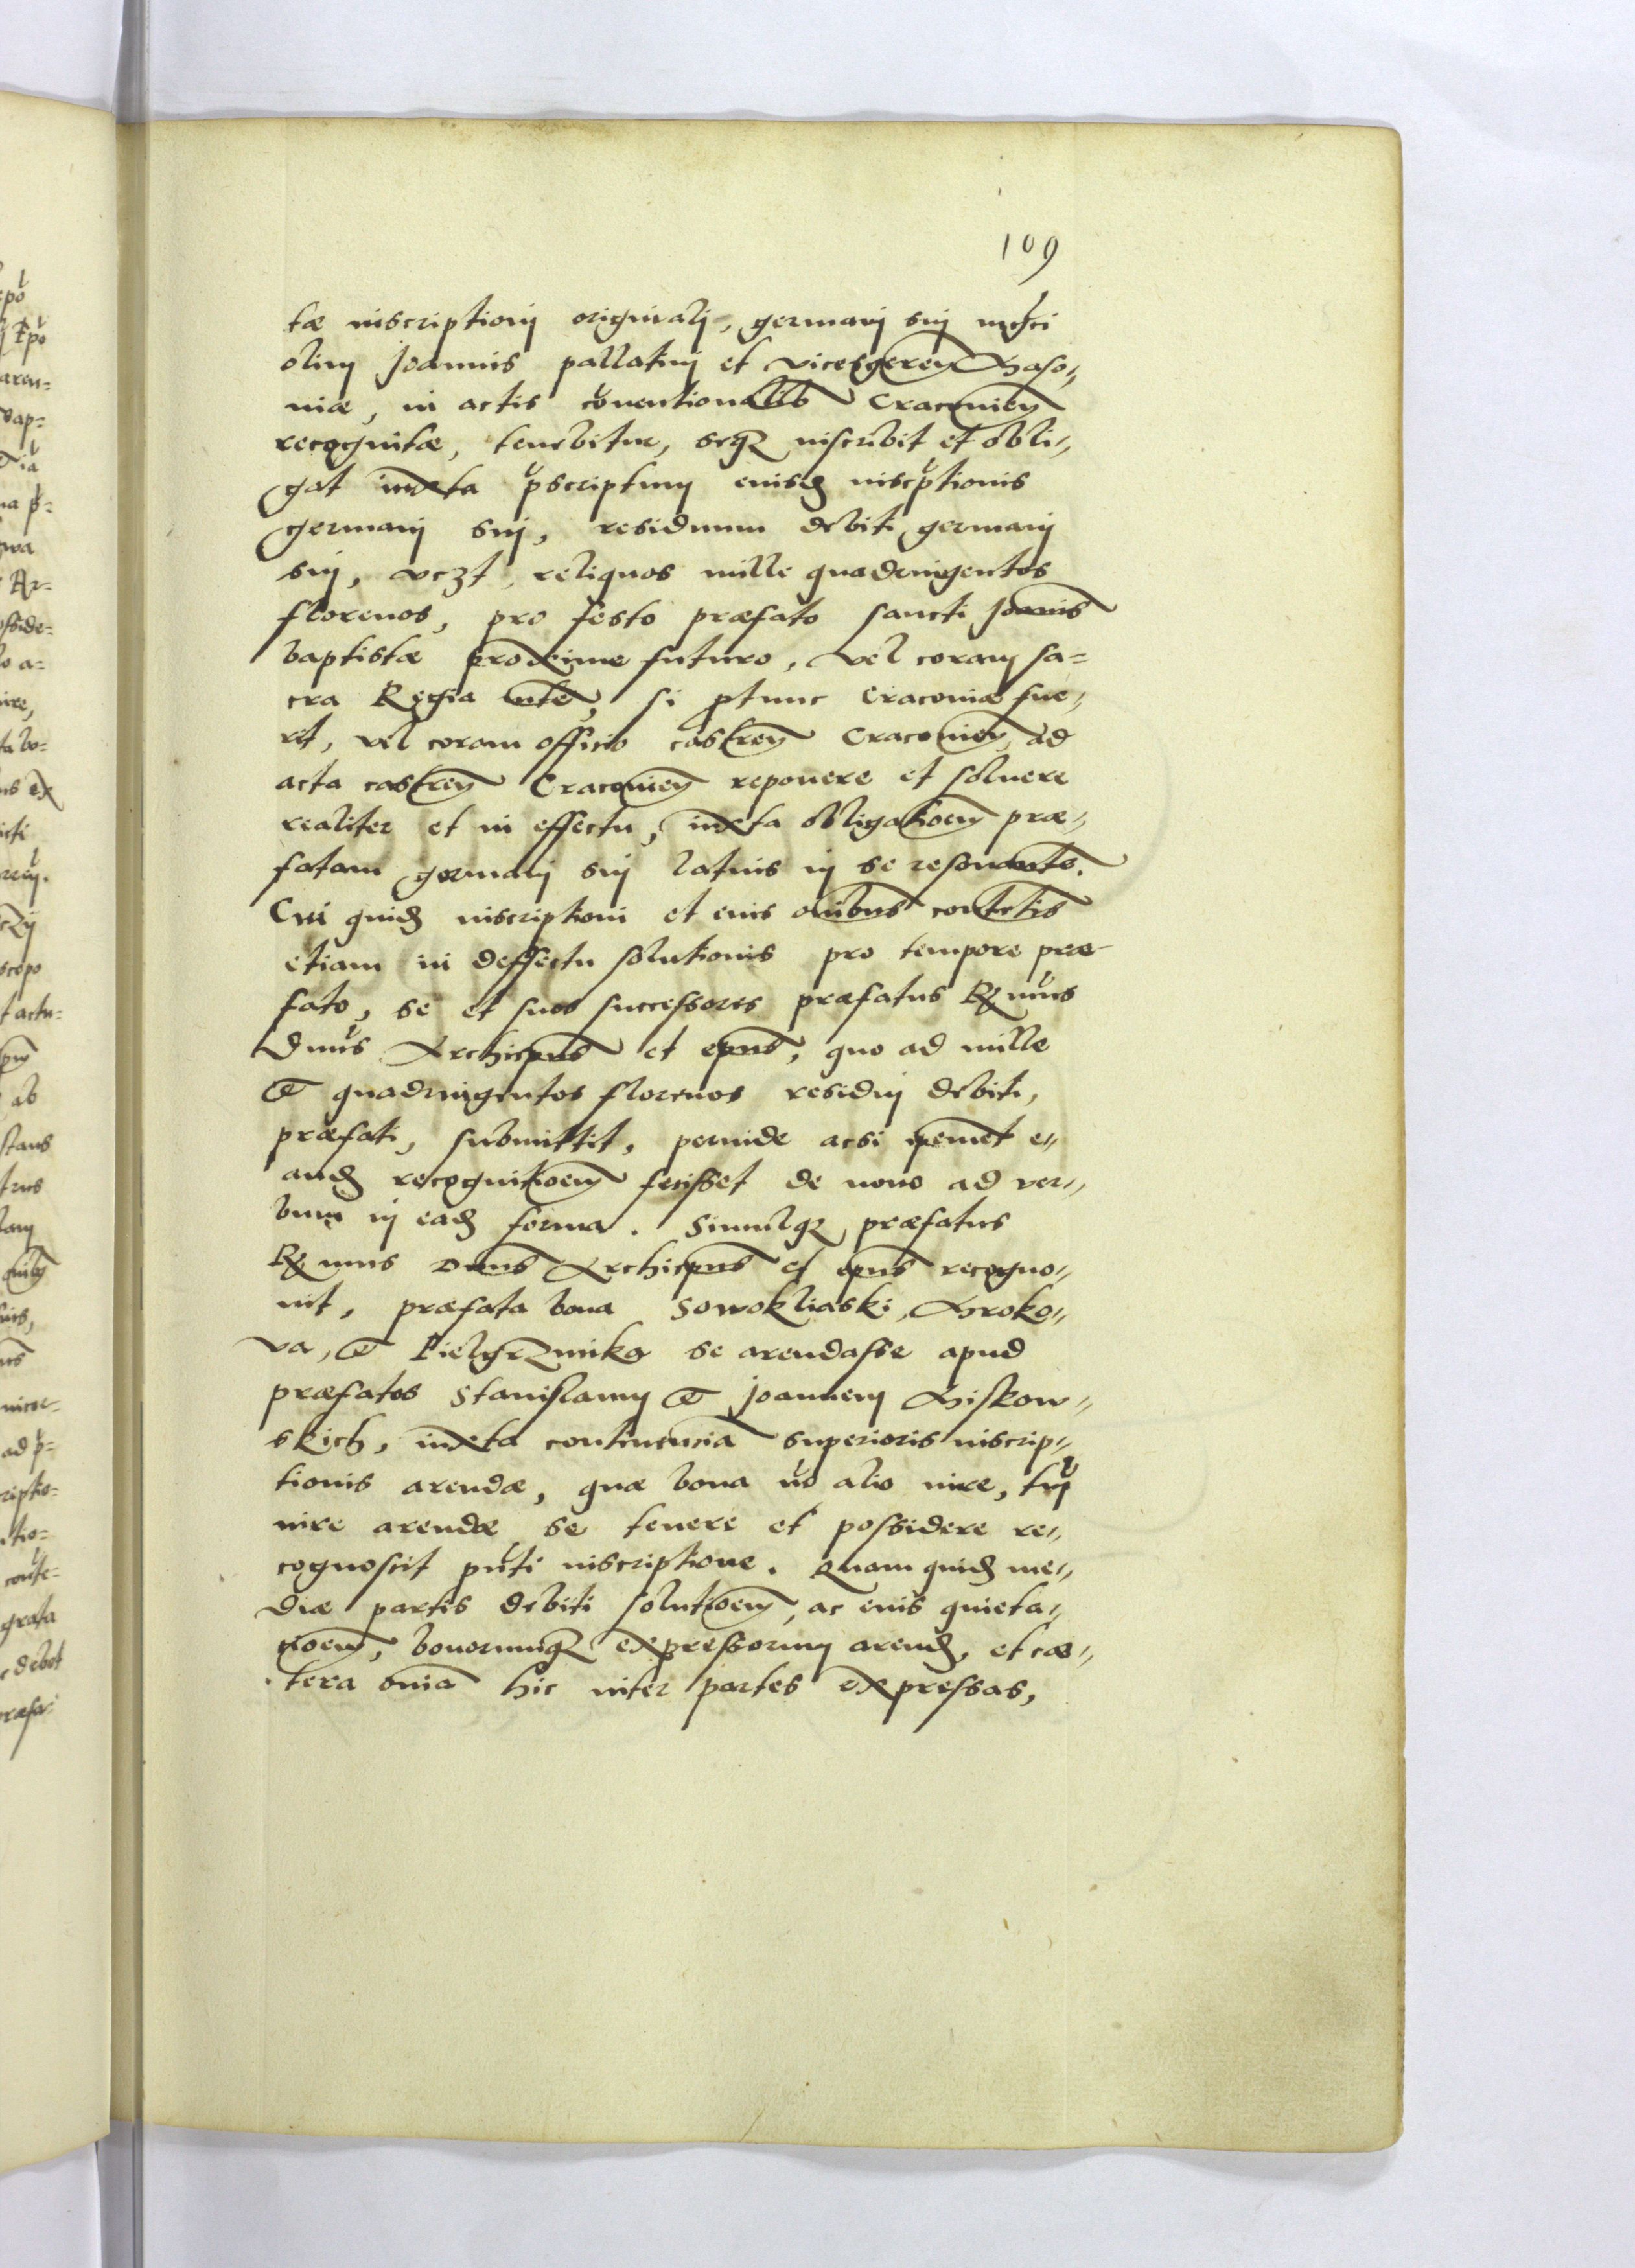 109
tæ inscriptionj originalj, germanj suj mgfci
olim Joannis pallatinj et vicesgereñ Maso„
niæ, in actis cōuentionalib Cracouień
recognitæ, tenebitur, seqz inscribit et obli„
gat iuxta p̄scriptum eiusd inscp̄tionis
germanj suj, residuum debiti germanj
suj, vczt reliquos mille quadringentos
florenos, pro festo præfato sancti Joannis
baptistæ proxime futuro, vel coram sa=
cra Regia mte, si ptunc Cracouiæ fue„
rit, vel coram officio castreñ Cracouień ad
acta castreñ Cracouień reponere et soluere
realiter et in effectu, iuxta obligatioem præ„
fatam germanj suj latius in se resonantē.
Cui quid inscriptioni et eius oībus contētis
etiam in deffectu solutionis pro tempore præ
fato, se et suos successores præfatus Rmus
Dnus Archiepus et epus, quo ad mille
et quadringentos florenos residuj debiti,
præfati, submittit, perinde acsi ipemet e„
and recognitioem fecisset de nouo ad ver„
bum in ead forma. Simulqz præfatus
Rmus Dnus Archiepus et epus recogno„
uit, præfata bona Sowokliaski, Mroko„
va, et Pielgrzmika se arendasse apud
præfatos Stanislaum et Joannem Miskow„
skich, iuxta continentia superioris inscrip„
tionis arendæ, quæ bona nō alio iure, tm̄
iure arendæ se tenere et possidere re„
cognoscit p̄nti inscriptione. Quam quid me„
diæ partis debiti solutioem, ac eius quieta„
tioem, bonorumqz expressorum arend, et cæ„
tera oīa hic inter partes expressas,